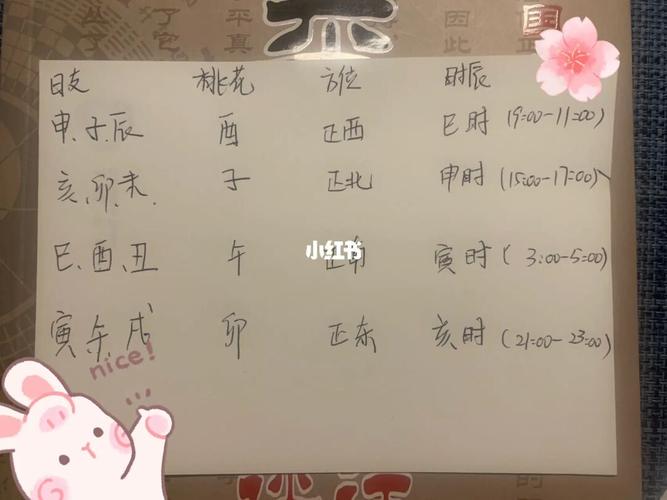 丛 了 平 因 国
了 它 真 此 正
日支 桃花 方位 时辰
申、子、辰 酉 正西 巳时 (9:00-11:00)
亥、卯、未、 子 正北 申时 (15:00-17:00)
巳、酉、丑 午 正南 寅时 (3:00-5:00)
小红书
寅、午、戌 卯 正东 亥时 (21:00-23:00)
nice!